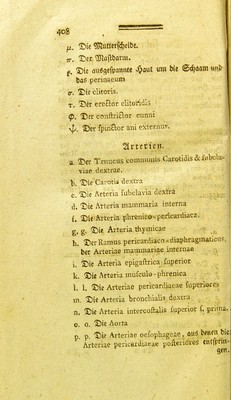 408
μ. Die Mutterscheide.
π. Der Mastdarm.
ϱ. Die ausgespannte Haut um die Schaam und
das perinaeum
σ. Die clitoris.
τ. Der erector clitoridis
φ. Der constrictor cunni
ψ. Der spinctor ani externus.
Arterien.
a. Der Truncus communis Carotidis & subcla-
viae dextrae.
b. Die Carotis dextra
c. Die Arteria subclavia dextra
d. Die Arteria mammaria interna
f. Die Arteria phrenico-pericardiaca.
g. g. Die Arteria thymicae
h. Der Ramus pericardiaco-diaphragmaticus,
der Arteriae mammariae internae
i. Die Arteria epigastrica superior
k. Die Arteria musculo-phrenica
l. l. Die Arteriae pericardiacae superiores
m. Die Arteria bronchialis dextra
n. Die Arteria intercostalis superior s. prima.
o. o. Die Aorta
p. p. Die Arteriae oesophageae, aus denen die
Arteriae pericardiacae posteriores entsprin-
gen.